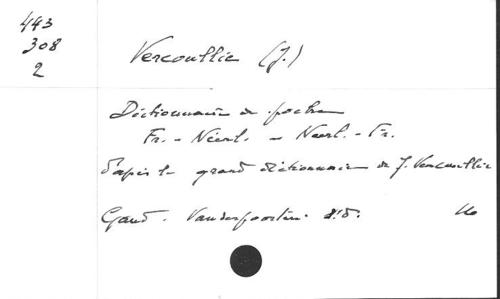 443
308
2
Vercoullie (J.)
Dictionnaire de poche
Fr. - Néerl. - Néerl. - Fr.
d'après le grand dictionnaire de J. Vercoullie
Gand. Vanderpoorten. s.d.